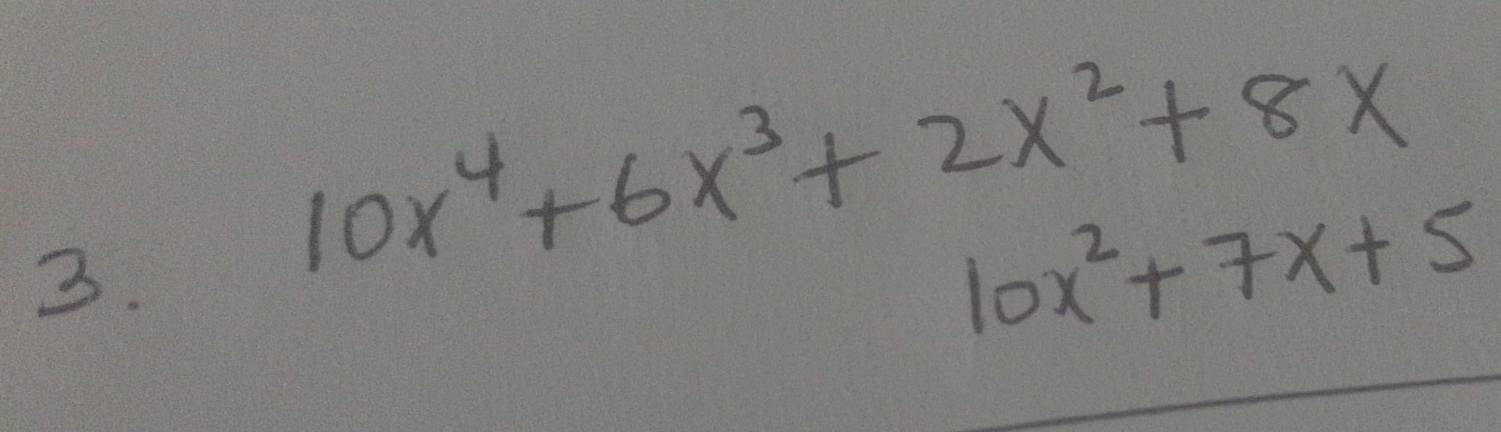 3. 10x⁴+6x³+2x²+8x
10x²+7x+5